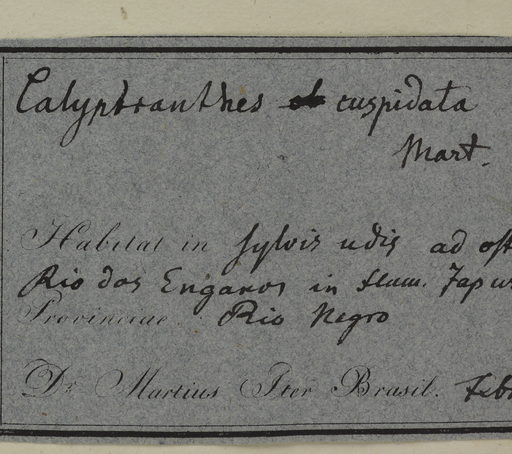 Calyptranthes cuspidata
Mart.
Habitat in sylvis udis ad ost
Rio dos Enganos in flum. Japur
Provinciae Rio Negro
Dr. Martius Iter Brasil. Feb